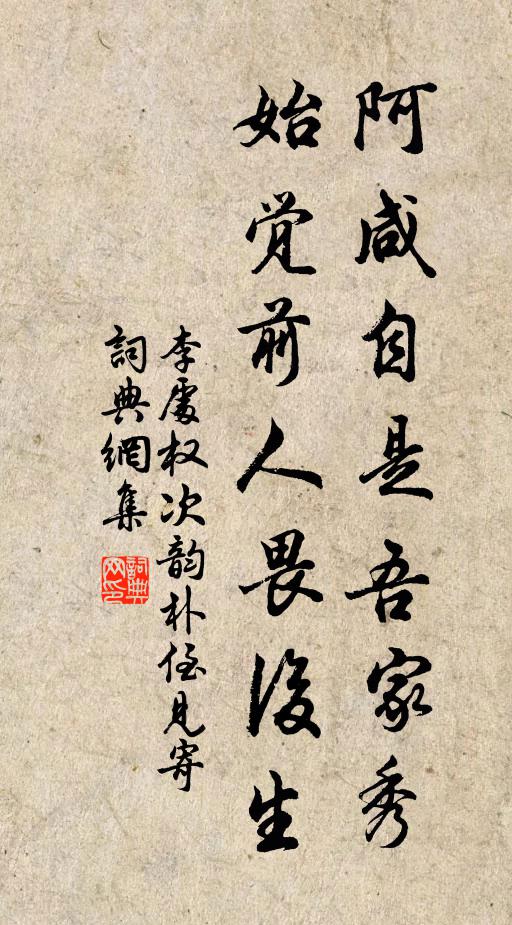 阿咸自是吾家秀
始觉前人畏後生
李處权次韵朴侄见寄
詞典網集
詞典網印